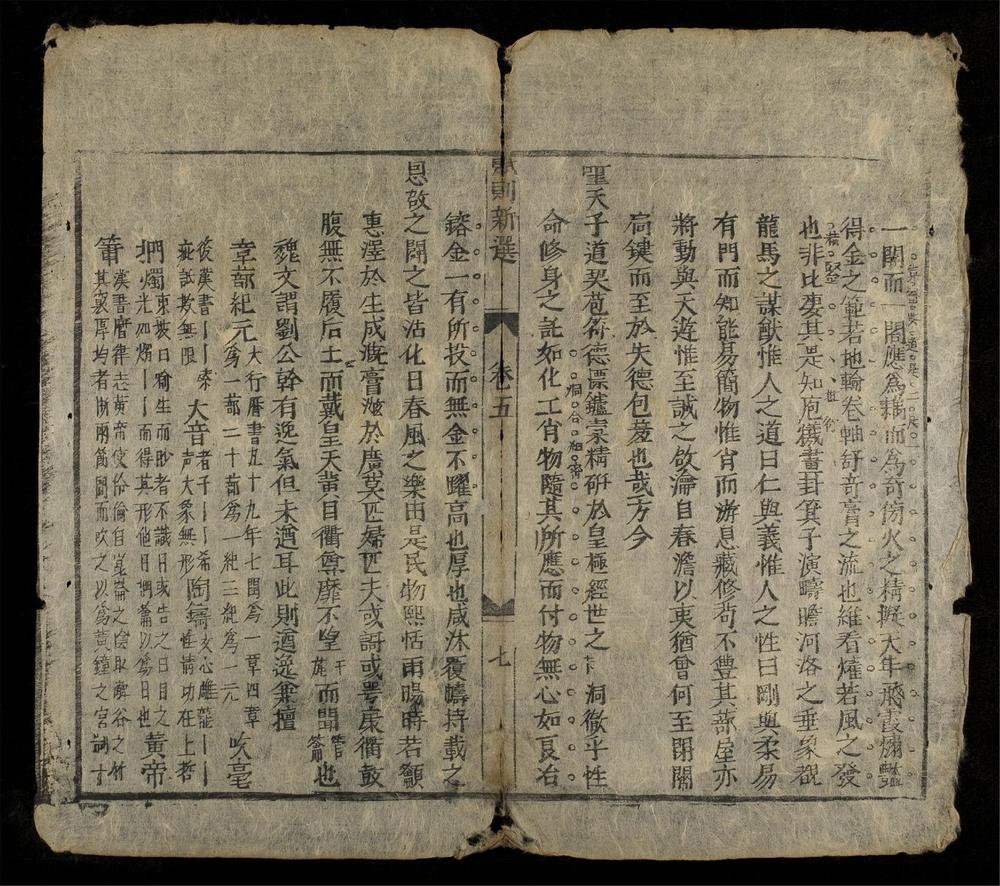 一闢而一闔應爲耦而爲奇傍火之精擬大年飛霞爀
得金之範若地輸卷軸紓奇膏之流也維看爟若風之發
也非比妄其是知庖儀畫卦箕子演疇瞻河洛之垂象覩
龍馬之謀猷惟人之道曰仁與義惟人之性曰剛與柔易
有門而知能易簡物惟肖而游息藏修苟不豊其蔀屋亦
將動與天遊惟至誠之攸淪自春澹以夷猶曾何至閉關
扃鍵而至於失德包羞也哉方今
聖天子道契苞符德慓鑪槖精硏於皇極經世之洞徹乎性
命修身之訖如化工肖物隨其所應而付物無心如良冶
賦則新選
卷五
七
鎔金一有所投而無金不躍高也厚也咸沐覆幬持載之
恩敬之闢之皆沾化日春風之樂由是民物熙恬雨暘時若顲
惠澤於生成漑膏滋於廣莫匹婦匹夫或謌或咢康衢鼓
腹無不履后土而戴皇天黃目衢尊靡不望干旄而聞管籥也
魏文謂劉公幹有逸氣但未遒耳此則遒逸兼擅
章蔀紀元大行曆書九十九年七閏爲一章四章
爲一蔀二十蔀爲一紀三紀爲一元
吹毫
後漢書丨丨索
疵詆欺無限
大音者千丨丨希
声大象無形
陶鑄文心雕龍丨丨
性情功在上哲
捫燭東坡曰喻生而眇者不識日或告之曰日之
光如燭丨丨而得其形他日捫籥以爲日也
黃帝
筩漢書曆律志黃帝使伶倫自崑崙之陰取嶰谷之竹
其竅厚均者斷兩節間而吹之以爲黃鐘之宮制十